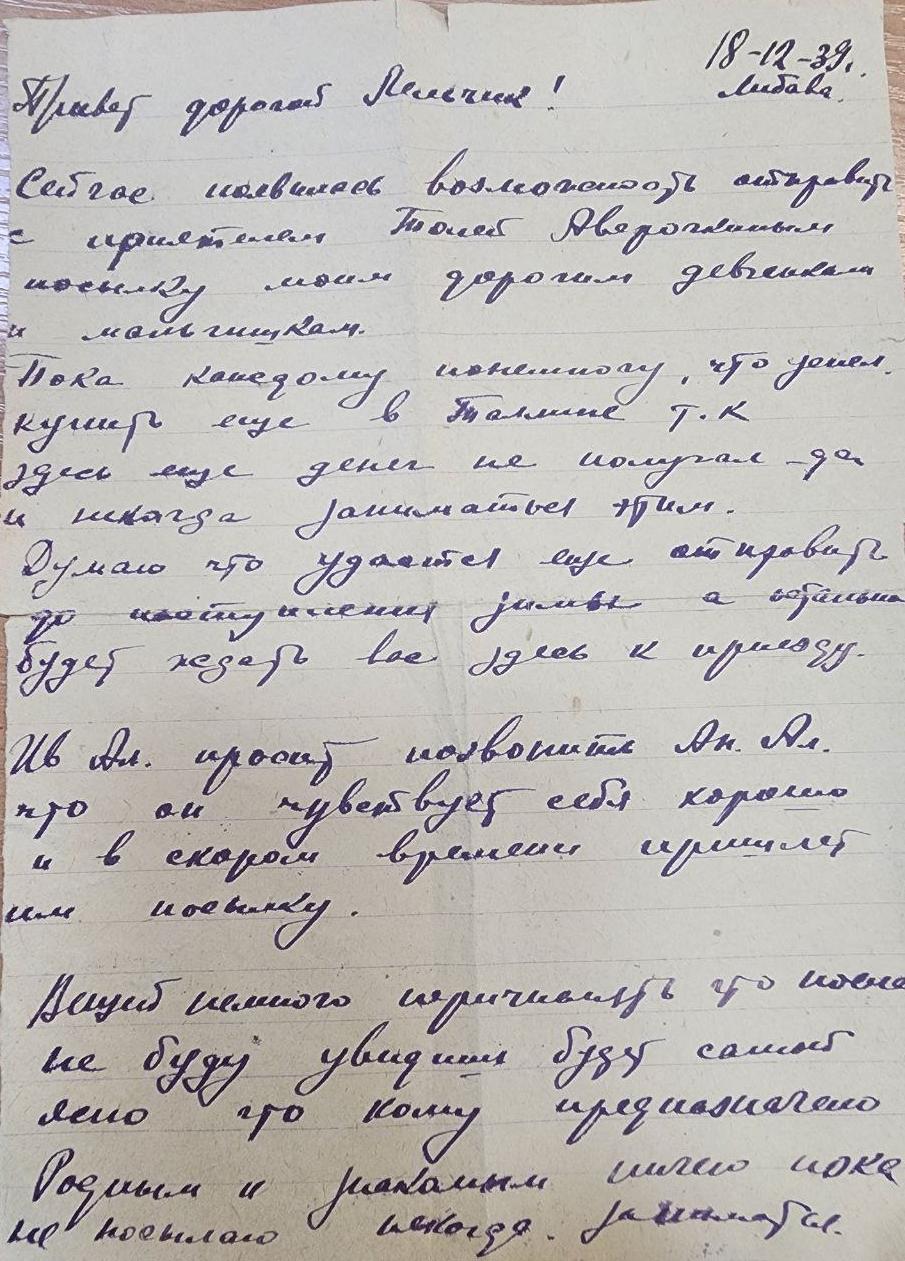 18-12-39.
Либава.
Привет дорогой Лельчик!
Сейчас появилась возможность отправить
с приятелем Толей Аверочкиным
посылку моим дорогим девченкам
и мальчишкам.
Пока каждому понемногу, что успел
купить еще в Таллине т.к
здесь еще денег не получал да
и некогда заниматься этим.
Думаю что удастся еще отправить
до наступления зимы а остальн
будет ждать вас здесь к приезду.
Ив Ал. просит позвонить Ан. Ал.
что он чувствует себя хорошо
и в скором времени пришлет
им посылку.
немного что
не буду увидишь будет самой
ясно что кому предназначено
Родным и знакомым ничего пока
не посылаю некогда заниматься.